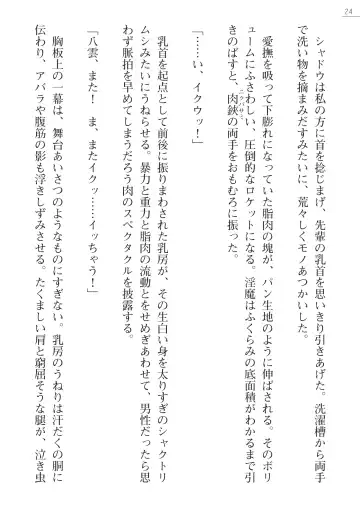 24
シャドウは私の方に首を捻じまげ、先輩の乳首を思いきり引きあげた。洗濯槽から両手
で洗い物を摘まみだすみたいに、荒々しくモノあつかいした。
愛撫を吸って下膨れになっていた脂肉の塊が、パン生地のように伸ばされる。そのボリ
ュームにふさわしい、圧倒的なロケットになる。淫魔はふくらみの底面積がわかるまで引
きのばすと、肉鋏の両手をおもむろに振った。
ニクバサミ
「……い、イクウッ！」
乳首を起点として前後に振りまわされた乳房が、その生白い身を太りすぎのシャクトリ
ムシみたいにうねらせる。暴力と重力と脂肉の流動とをせめぎあわせて、男性だったら思
わず脈拍を早めてしまうだろう肉のスペクタクルを披露する。
「八雲、また！　ま、またイクッ……イッちゃう！」
胸板上の一幕は、舞台あいさつのようなものにすぎない。乳房のうねりは汗だくの胴に
伝わり、アバラや腹筋の影も浮きしずみさせる。たくましい肩と窮屈そうな腿が、泣き虫